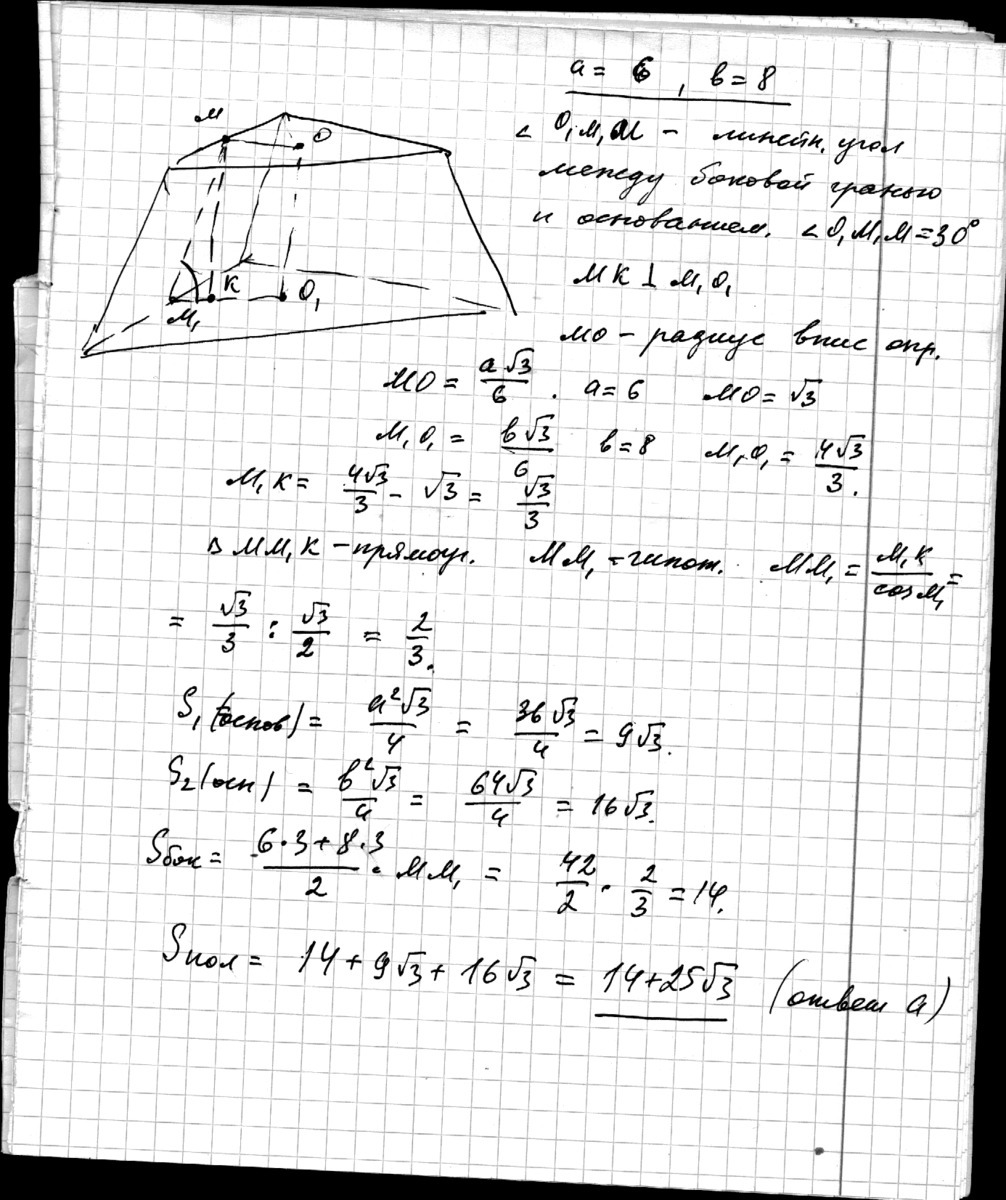 a = 6 , в = 8
M
O
K
O₁
M₁
∠ O₁M₁M – линейн. угол
между боковой гранью
и основанием. ∠O₁M₁M = 30°
MK ⊥ M₁O₁
MO – радиус впис окр.
MO = a√3/6 . a = 6 MO = √3
M₁O₁ = в√3/6 в = 8 M₁O₁ = 4√3/3.
M₁K = 4√3/3 – √3 = √3/3
Δ MM₁K – прямоуг. MM₁ – гипот. MM₁ = M₁K/cosM₁ =
= √3/3 : √3/2 = 2/3.
S₁(основ) = a²√3/4 = 36√3/4 = 9√3.
S₂(осн) = в²√3/4 = 64√3/4 = 16√3.
Sбок = 6·3+8·3/2 · MM₁ = 42/2 · 2/3 = 14.
Sпол = 14 + 9√3 + 16√3 = 14+25√3 (ответ a)